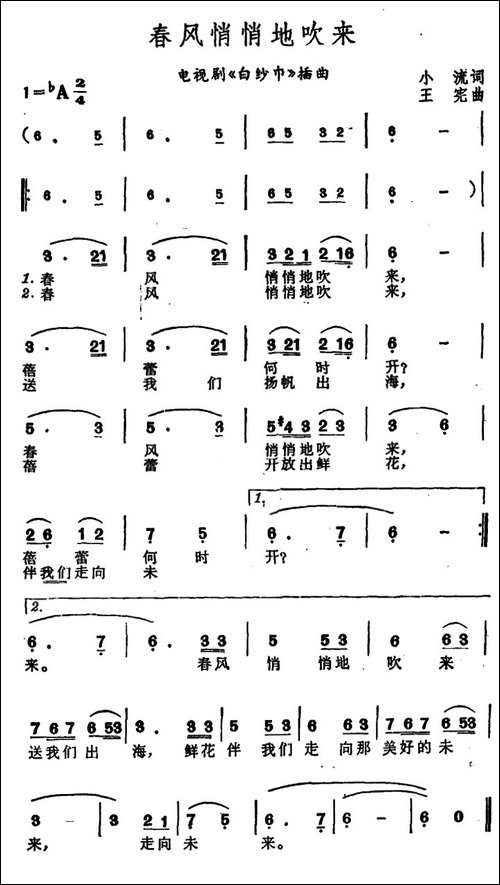 春风悄悄地吹来
电视剧《白纱巾》插曲
1=♭A 2/4
小流词
王宪曲
(6. 5 | 6. 5 | 65 32 | 6 - |
‖: 6. 5 | 6. 5 | 65 32 | 6 - )|
3. 21 | 3. 21 | 3 2 1 2 16 | 6 - |
1.春 风 悄悄地吹 来,
2.春 风 悄悄地吹 来,
3. 21 | 3. 21 | 3 21 2 16 | 6 - |
蓓 蕾 何 时 开?
送 我 们 扬帆出 海,
5. 3 | 5. 3 | 5 #4 3 2 3 | 3 6 |
春 风 悄悄地吹 来,
蓓 蕾 开放出鲜 花,
1.
2 6 1 2 | 7 5 | 6. 7 | 6 - :‖
蓓 蕾 何 时 开?
伴我们走向 未
2.
6. 7 | 6. 3 3 | 5 5 3 | 6 6 3 |
来。 春风 悄 悄地 吹 来
7 6 7 6 53 | 3. 3 3 | 5 5 5 | 6 6 6 | 7 6 7 6 53 |
送我们出 海, 鲜花 伴 我们 走 向那 美好的未
3 - | 3 21 | 7 5 | 6. 7 | 6 - | 6 0 ‖
来, 走向 未 来。